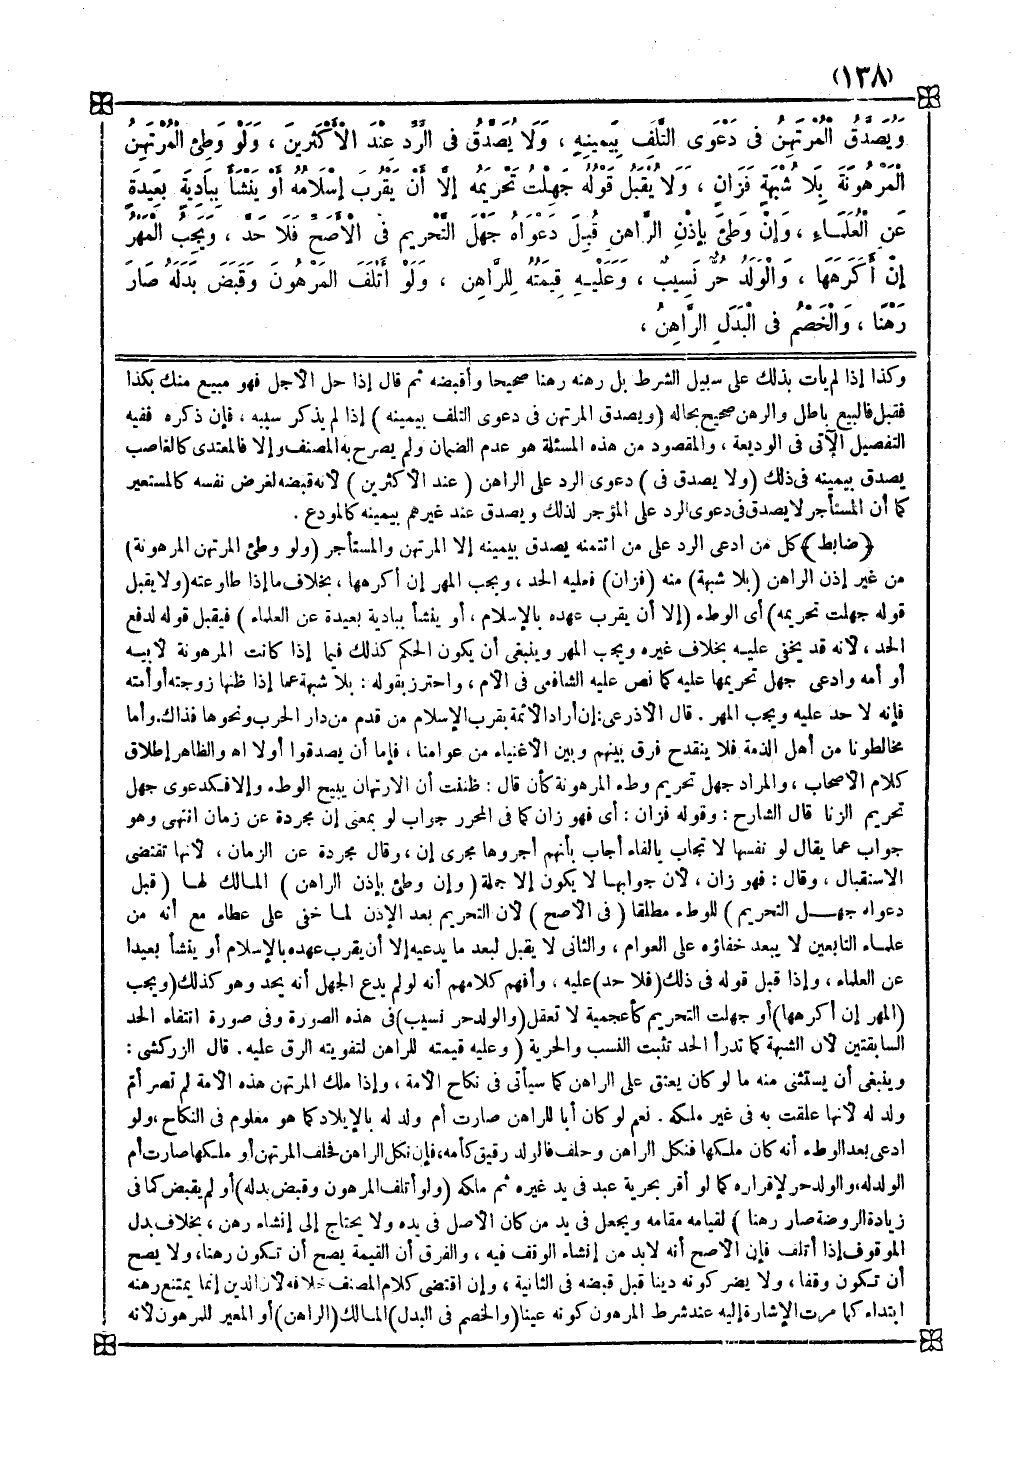 (١٣٨)
وَيُصَدَّقُ الْمُرْتَهِنُ فِى دَعْوَى التَّلَفِ بِيَمِينِهِ ، وَلَا يُصَدَّقُ فِى الرَّدِّ عِنْدَ الْأَكْثَرِينَ ، وَلَوْ وَطِئَ الْمُرْتَهِنُ
الْمَرْهُونَةَ بِلَا شُبْهَةٍ فَزَانٍ ، وَلَا يُقْبَلُ قَوْلُهُ جَهِلْتُ تَحْرِيمَهُ إِلَّا أَنْ يَقْرُبَ إِسْلَامُهُ أَوْ يَنْشَأَ بِبَادِيَةٍ بَعِيدَةٍ
عَنِ الْعُلَمَاءِ ، وَإِنْ وَطِئَ بِإِذْنِ الرَّاهِنِ قُبِلَ دَعْوَاهُ جَهْلَ التَّحْرِيمِ فِى الْأَصَحِّ فَلَا حَدَّ ، وَيَجِبُ الْمَهْرُ
إِنْ أَكْرَهَهَا ، وَالْوَلَدُ حُرٌّ نَسِيبٌ ، وَعَلَيْهِ قِيمَتُهُ لِلرَّاهِنِ ، وَلَوْ أُتْلِفَ الْمَرْهُونُ وَقُبِضَ بَدَلُهُ صَارَ
رَهْنًا ، وَالْخَصْمُ فِى الْبَدَلِ الرَّاهِنُ ،
وكذا إذا لم يأت بذلك على سبيل الشرط بل رهنه رهنا صحيحا وأقبضه ثم قال إذا حل الأجل فهو مبيع منك بكذا
فقبل فالبيع باطل والرهن صحيح بحاله (ويصدق المرتهن فى دعوى التلف بيمينه) إذا لم يذكر سببه ، فإن ذكره ففيه
التفصيل الآتى فى الوديعة ، والمقصود من هذه المسئلة هو عدم الضمان ولم يصرح به المصنف وإلا فالمعتدى كالغاصب
يصدق بيمينه فى ذلك (ولا يصدق فى) دعوى الرد على الراهن (عند الأكثرين) لأنه قبضه لغرض نفسه كالمستعير
كما أن المستأجر لا يصدق فى دعوى الرد على المؤجر لذلك ويصدق عند غيرهم بيمينه كالمودع .
﴿ضابط﴾ كل من ادعى الرد على من ائتمنه يصدق بيمينه إلا المرتهن والمستأجر (ولو وطئ المرتهن المرهونة)
من غير إذن الراهن (بلا شبهة) منه (فزان) فعليه الحد ، ويجب المهر إن أكرهها ، بخلاف ما إذا طاوعته (ولا يقبل
قوله جهلت تحريمه) أى الوطء (إلا أن يقرب عهده بالإسلام ، أو ينشأ ببادية بعيدة عن العلماء) فيقبل قوله لدفع
الحد ، لأنه قد يخفى عليه بخلاف غيره ويجب المهر وينبغى أن يكون الحكم كذلك فيما إذا كانت المرهونة لأبيه
أو أمه وادعى جهل تحريمها عليه كما نص عليه الشافعى فى الأم ، واحترز بقوله : بلا شبهة عما إذا ظنها زوجته أو أمته
فإنه لا حد عليه ويجب المهر . قال الأذرعى : إن أراد الأئمة بقرب الإسلام من قدم من دار الحرب ونحوها فذاك ، وأما
مخالطونا من أهل الذمة فلا ينقدح فرق بينهم وبين الأغنياء من عوامنا ، فإما أن يصدقوا أولا اه والظاهر إطلاق
كلام الأصحاب ، والمراد جهل تحريم وطء المرهونة كأن قال : ظننت أن الارتهان يبيح الوطء وإلا فكدعوى جهل
تحريم الزنا قال الشارح : وقوله فزان : أى فهو زان كما فى المحرر جواب لو بمعنى إن مجردة عن زمان انتهى وهو
جواب عما يقال لو نفسها لا تجاب بالفاء أجاب بأنهم أجروها مجرى إن ، وقال مجردة عن الزمان ، لأنها تقتضى
الاستقبال ، وقال : فهو زان ، لأن جوابها لا يكون إلا جملة (وإن وطئ بإذن الراهن) المالك لها (قبل
دعواه جهل التحريم) للوطء مطلقا (فى الأصح) لأن التحريم بعد الإذن لما خفى على عطاء مع أنه من
علماء التابعين لا يبعد خفاؤه على العوام ، والثانى لا يقبل لبعد ما يدعيه إلا أن يقرب عهده بالإسلام أو ينشأ بعيدا
عن العلماء ، وإذا قبل قوله فى ذلك (فلا حد) عليه ، وأفهم كلامهم أنه لو لم يدع الجهل أنه يحد وهو كذلك (ويجب
المهر إن أكرهها) أو جهلت التحريم كأعجمية لا تعقل (والولد حر نسيب) فى هذه الصورة وفى صورة انتفاء الحد
السابقتين لأن الشبهة كما تدرأ الحد تثبت النسب والحرية (وعليه قيمته للراهن لتفويته الرق عليه . قال الزركشى :
وينبغى أن يستثنى منه ما لو كان يعتق على الراهن كما سيأتى فى نكاح الأمة ، وإذا ملك المرتهن هذه الأمة لم تصر أم
ولد له لأنها علقت به فى غير ملكه . نعم لو كان أبا للراهن صارت أم ولد له بالإيلاد كما هو معلوم فى النكاح ، ولو
ادعى بعد الوطء أنه كان ملكها فنكل الراهن وحلف فالولد رقيق كأمه ، فإن نكل الراهن فحلف المرتهن أو ملكها صارت أم
الولد له ، والولد حر لإقراره كما لو أقر بحرية عبد فى يد غيره ثم ملكه (ولو أتلف المرهون وقبض بدله) أو لم يقبض كما فى
زيادة الروضة صار رهنا) لقيامه مقامه ويجعل فى يد من كان الأصل فى يده ولا يحتاج إلى إنشاء رهن ، بخلاف بدل
الموقوف إذا أتلف فإن الأصح أنه لابد من إنشاء الوقف فيه ، والفرق أن القيمة يصح أن تكون رهنا ، ولا يصح
أن تكون وقفا ، ولا يضر كونه دينا قبل قبضه فى الثانية ، وإن اقتضى كلام المصنف خلافه لأن الدين إنما يمتنع رهنه
ابتداء كما مرت الإشارة إليه عند شرط المرهون كونه عينا (والخصم فى البدل) المالك (الراهن) أو المعير للمرهون لأنه